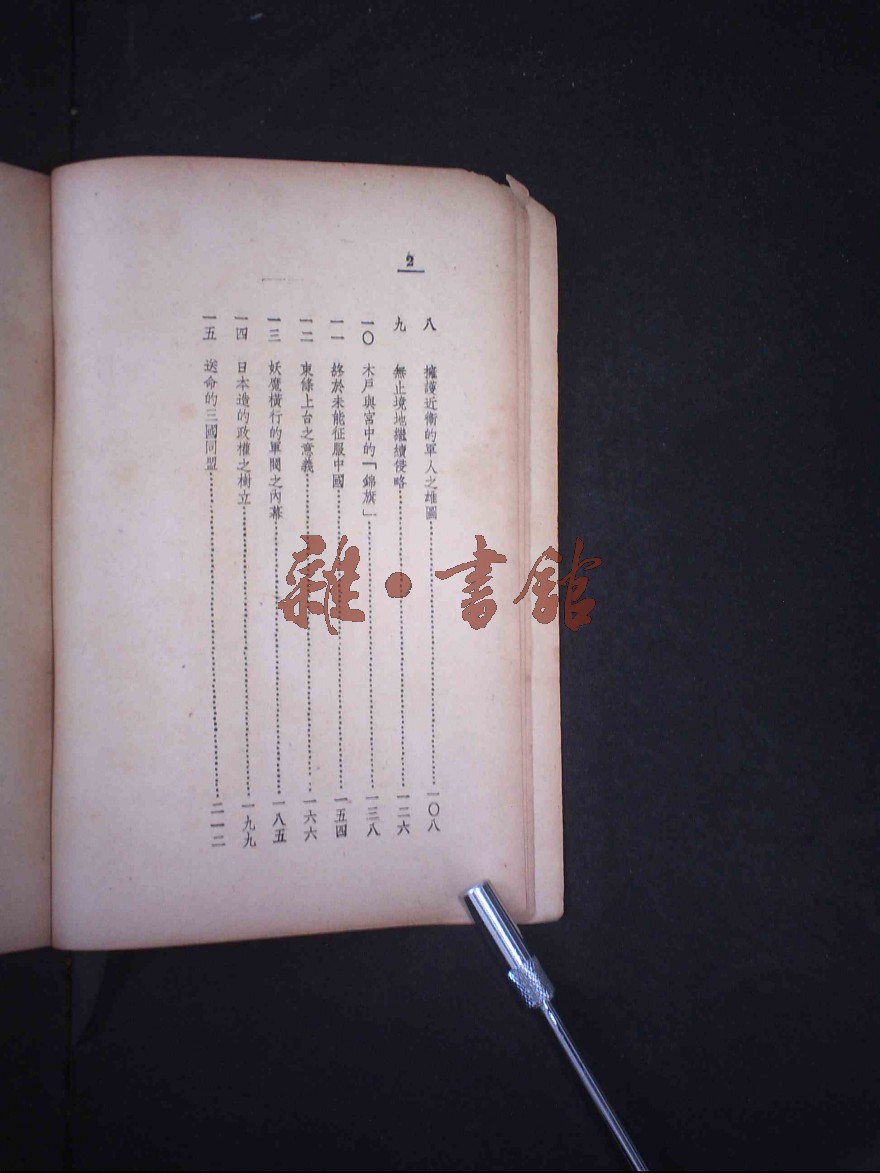 2
八 擁護近衞的軍人之雄圖 一〇八
九 無止境地繼續侵略 一二六
一〇 木戶與宮中的「錦旗」 一三八
一一 終於未能征服中國 一五四
一二 東條上台之意義 一六六
一三 妖魔橫行的軍閥之內幕 一八五
一四 日本造的政權之樹立 一九九
一五 送命的三國同盟 二一二
雜·書館